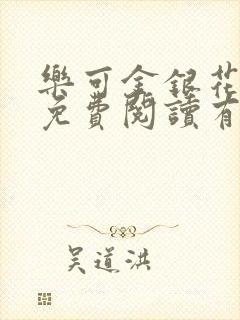 樂可金銀花
免費閱讀有
吴道洪